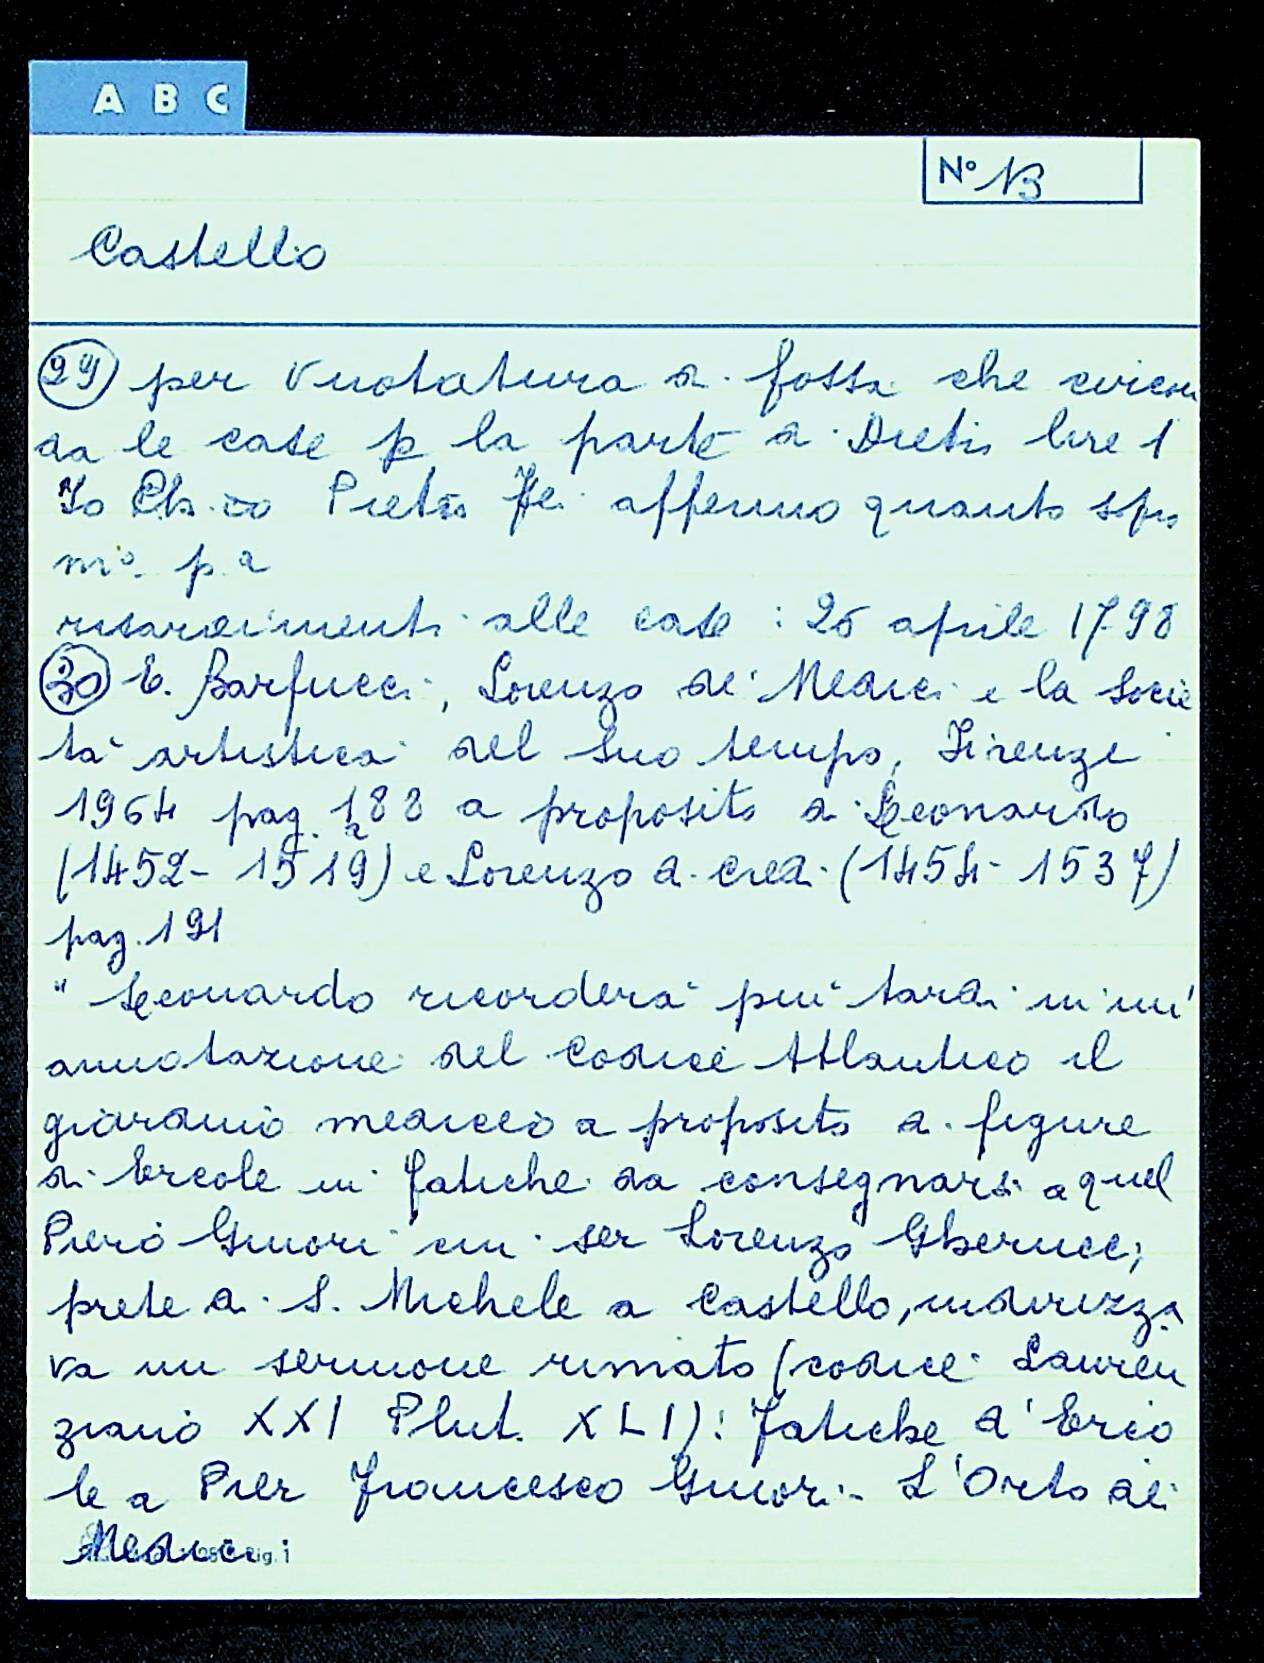 A B C
N° 13
Castello
29 per vuotatura di fossa che circon
da le case p la parte di Dietro lire 1
Io Pietro Fei affermo quanto sopra
m° p a
risarcimenti alle case : 26 aprile 1798
30 E. Barfucci, Lorenzo de' Medici e la socie
tà artistica del suo tempo, Firenze
1964 pag. 188 a proposito di Leonardo
(1452 - 1519) e Lorenzo di Credi (1454 - 1537)
pag. 191
" Leonardo ricorderà più tardi in un'
annotazione del Codice Atlantico il
giardino mediceo a proposito di figure
di Ercole in fatiche da consegnarsi a quel
Piero Ginori cui ser Lorenzo Gherucci,
prete di S. Michele a Castello, indirizza
va un sermone rimato (codice Lauren
ziano XXI Plut. XLI): Fatiche d'Erco
le a Pier Francesco Ginori - L'Orto dei
Medici